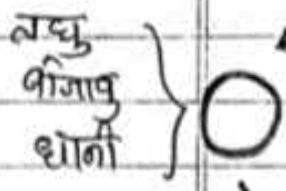 लघु
बीजाणु
धानी